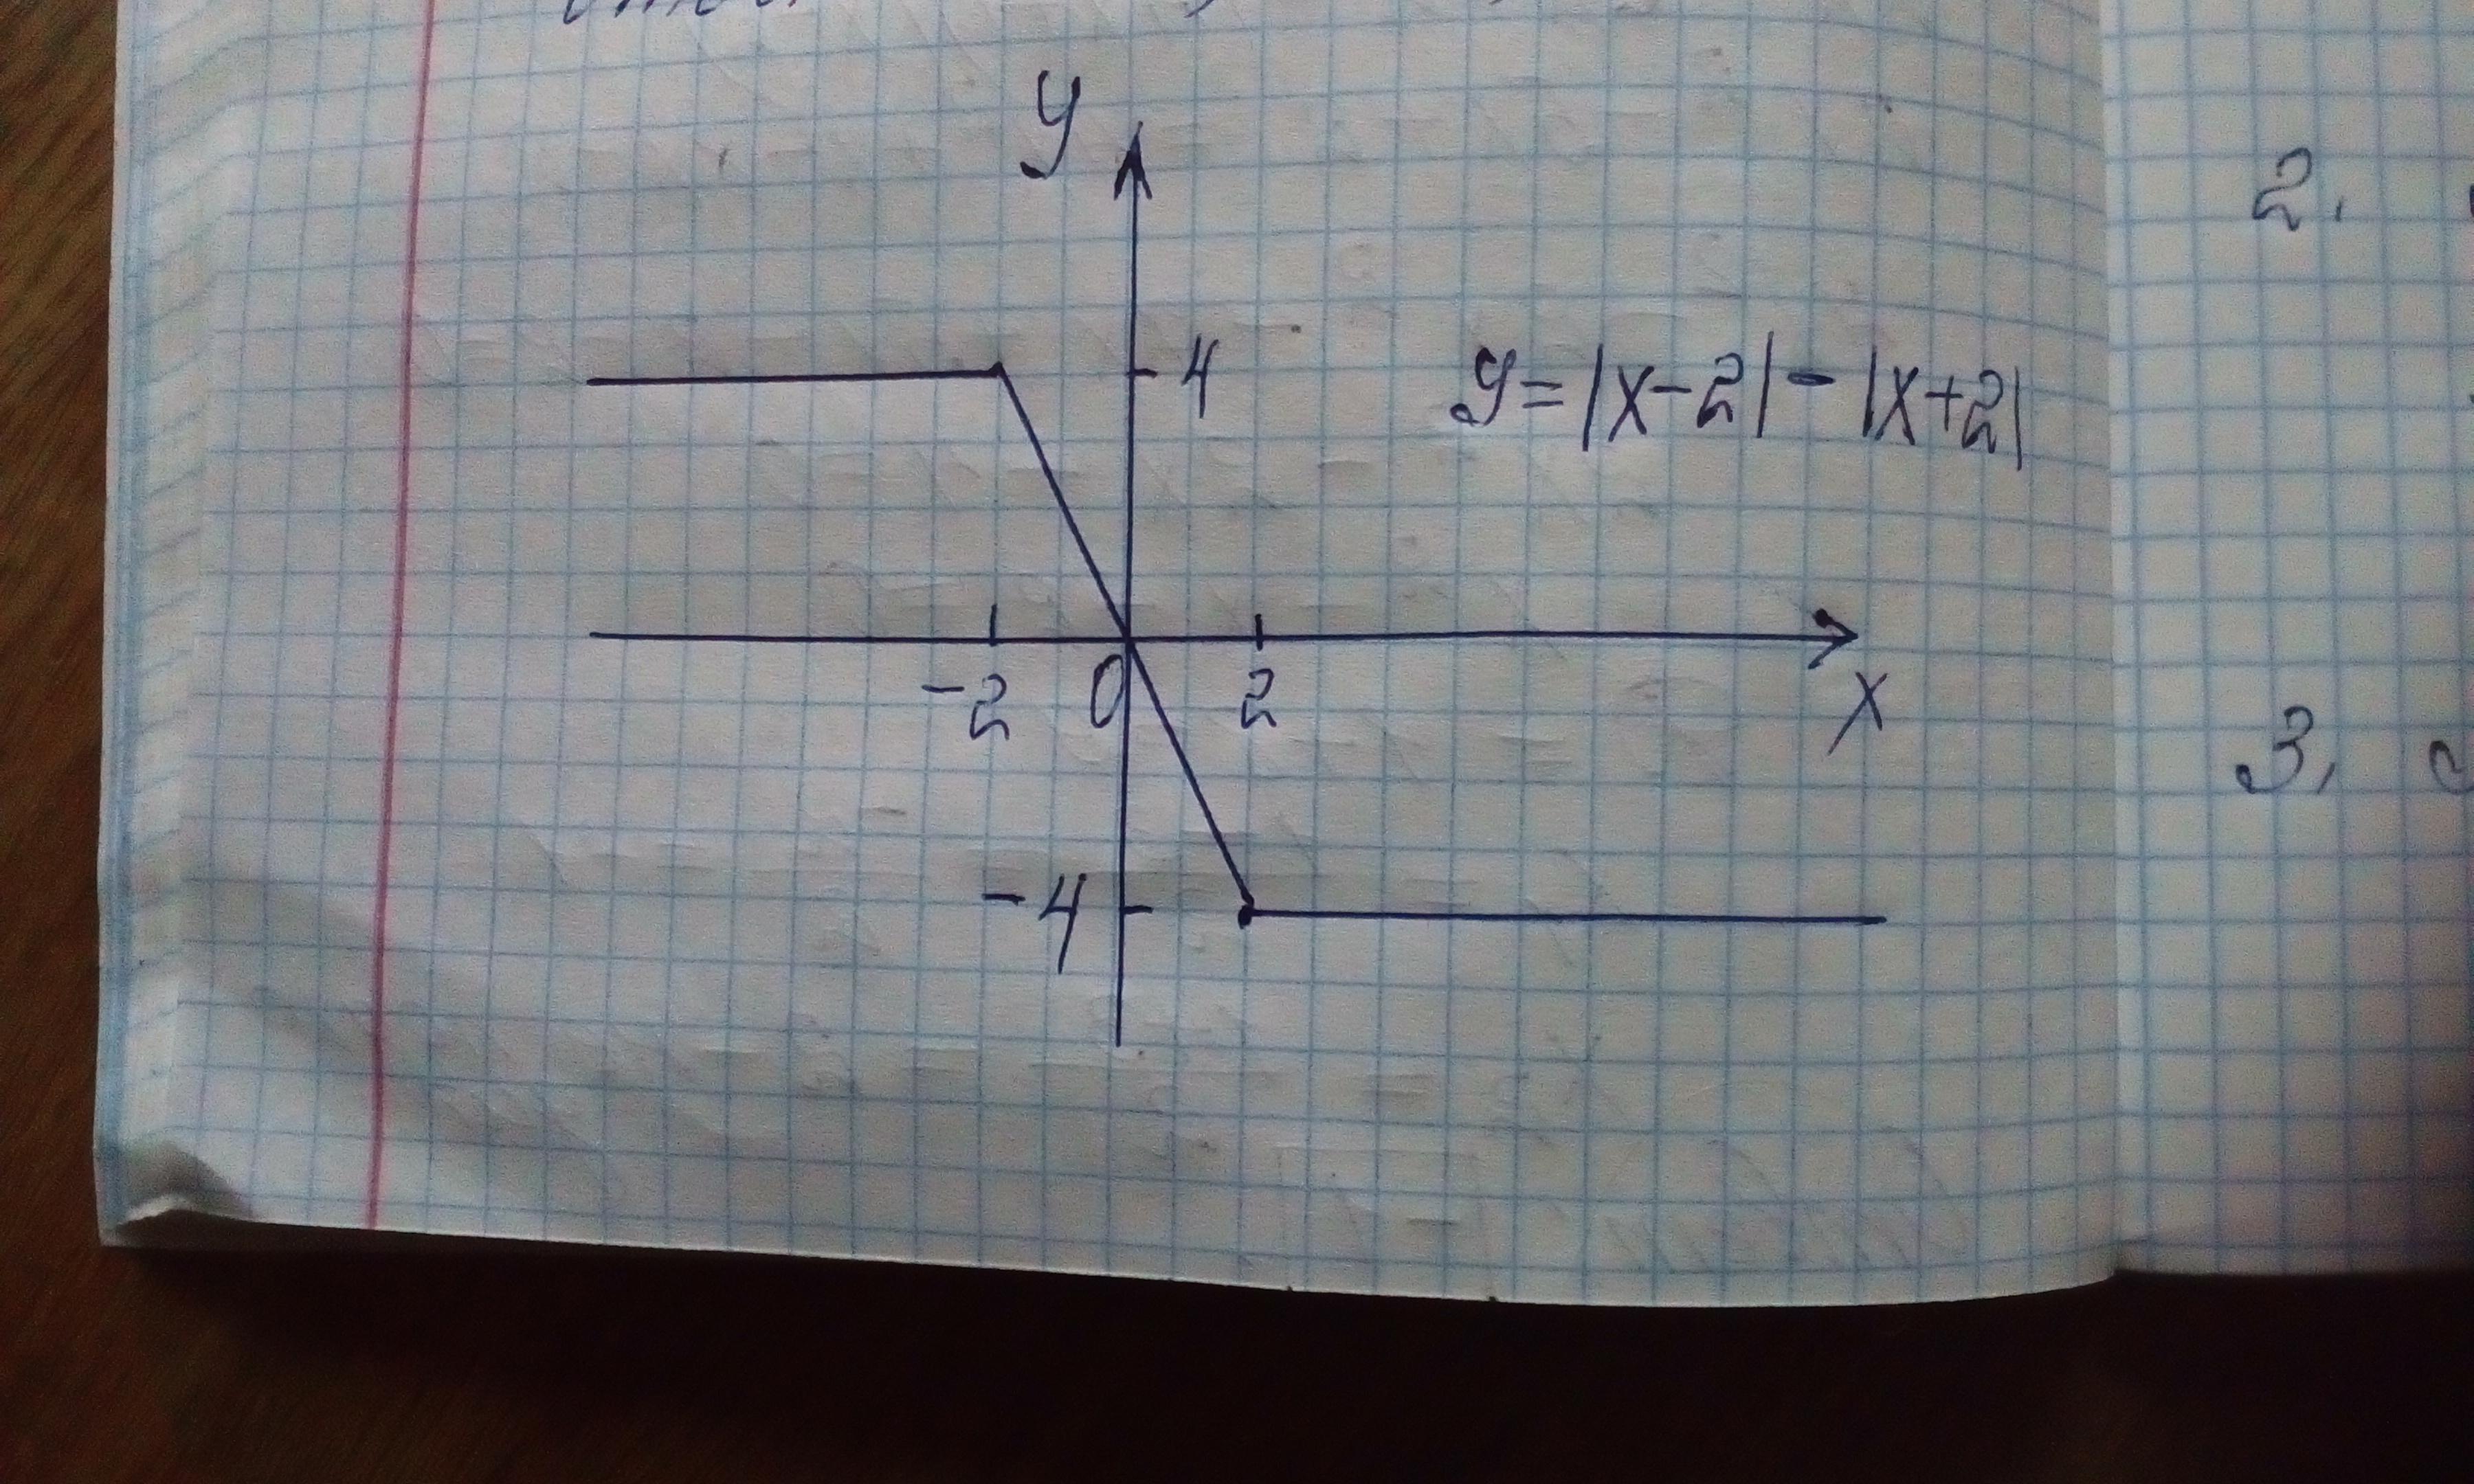 y
4
y=|x-2|-|x+2|
-2 0 2
x
-4
2.
3.